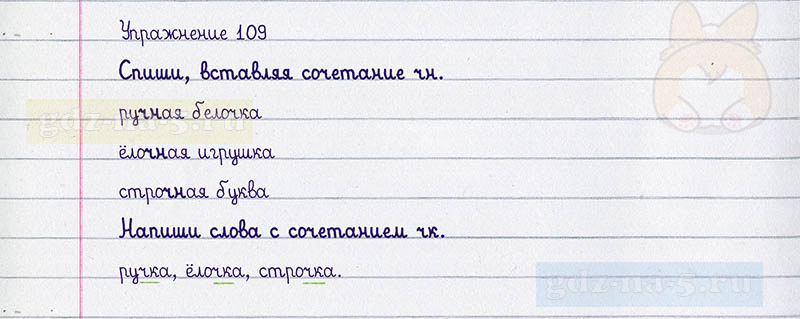 Упражнение 109
Спиши, вставляя сочетание чн.
ручная белочка
ёлочная игрушка
строчная буква
Напиши слова с сочетанием чк.
ручка, ёлочка, строчка.
gdz-na-5.ru
gdz-na-5.ru